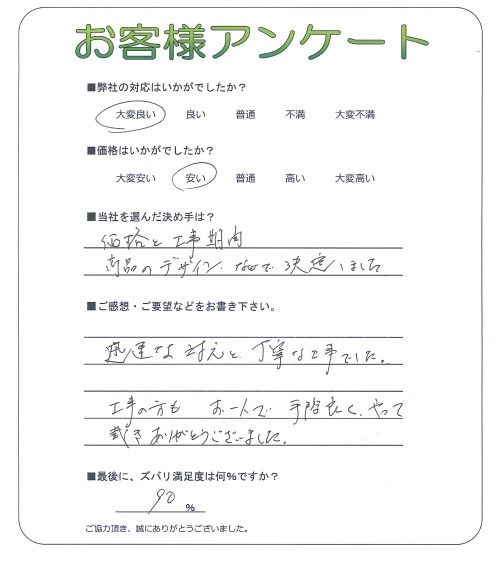 お客様アンケート
■弊社の対応はいかがでしたか？
大変良い 良い 普通 不満 大変不満
■価格はいかがでしたか？
大変安い 安い 普通 高い 大変高い
■当社を選んだ決め手は？
価格と工事期間
商品のデザイン、などで決定しました
■ご感想・ご要望などをお書き下さい。
迅速な対応と、丁寧な工事でした。
工事の方も お一人で 手際良く、やって
戴きありがとうございました。
■最後に、ズバリ満足度は何%ですか？
90 %
ご協力頂き、誠にありがとうございました。